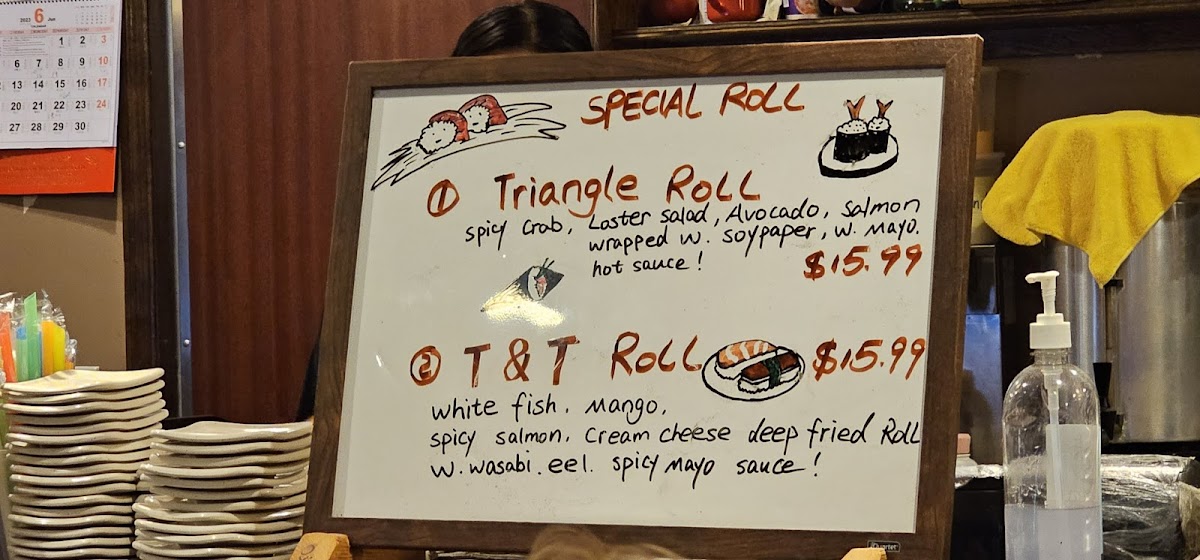 2023 6 Jun
1 2 3
6 7 8 9 10
12 13 14 15 16 17
20 21 22 23 24
27 28 29 30
SPECIAL ROLL
① Triangle ROLL
spicy crab, Loster salad, Avocado, Salmon
wrapped w. soypaper, w. mayo.
hot sauce!
$15.99
② T & T ROLL $15.99
white fish. mango.
spicy salmon. cream cheese deep fried ROLL
w. wasabi. eel. spicy mayo sauce!
Quartet